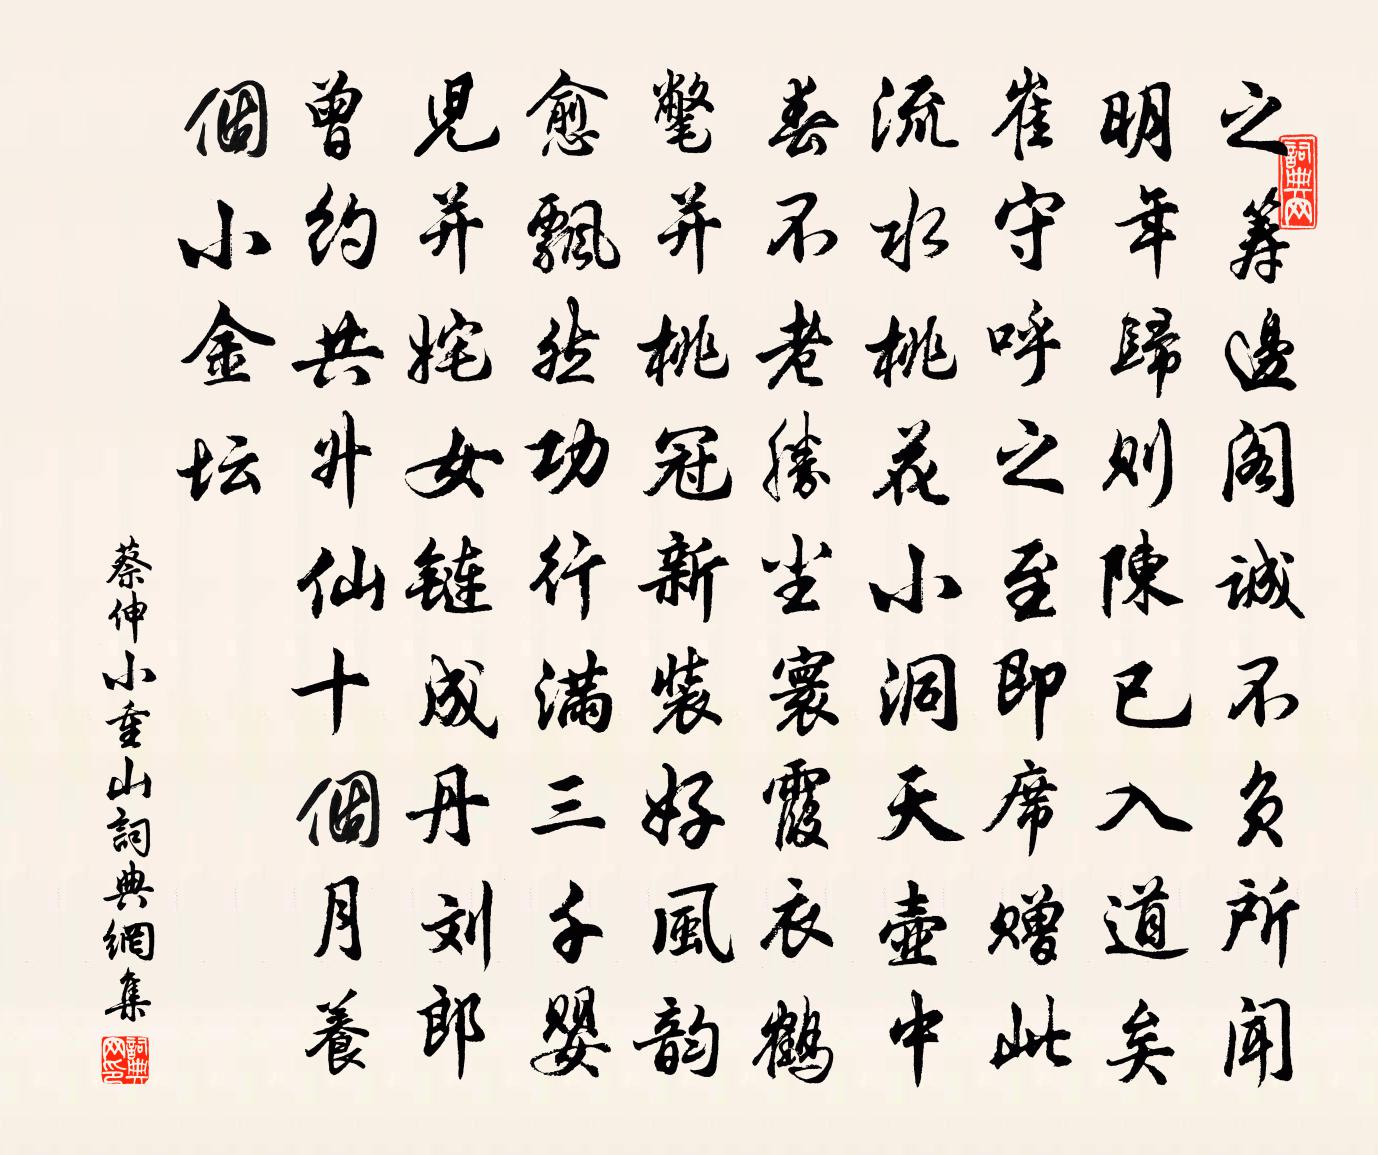 之筹邊阁诚不负所闻
明年歸则陳已入道矣
崔守呼之至即席赠此
流水桃花小洞天壶中
春不老勝尘寰霞衣鹤
氅并桃冠新裝好風韵
愈飄然功行满三千婴
児并姹女链成丹刘郎
曾约共升仙十個月養
個小金坛
蔡伸小重山詞典網集
詞典网
詞典网印